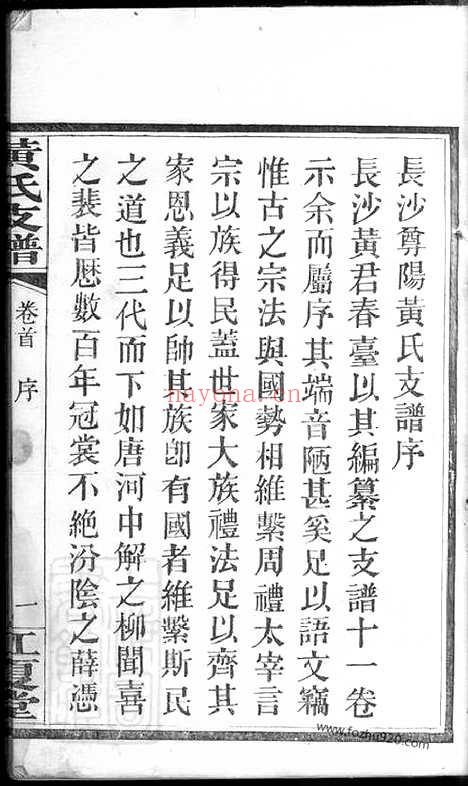 長沙尊陽黃氏支譜序
長沙黃君春臺以其編纂之支譜十一卷
示余而屬序其端音陋甚奚足以語文竊
惟古之宗法與國勢相維繫周禮太宰言
宗以族得民蓋世家大族禮法足以齊其
家恩義足以帥其族卽有國者維繫斯民
之道也三代而下如唐河中解之柳聞喜
之裴皆歷數百年冠裳不絕汾陰之薛憑
黃氏支譜
卷首 序
一
江夏堂
nayona.cn
www.fozhu920.com